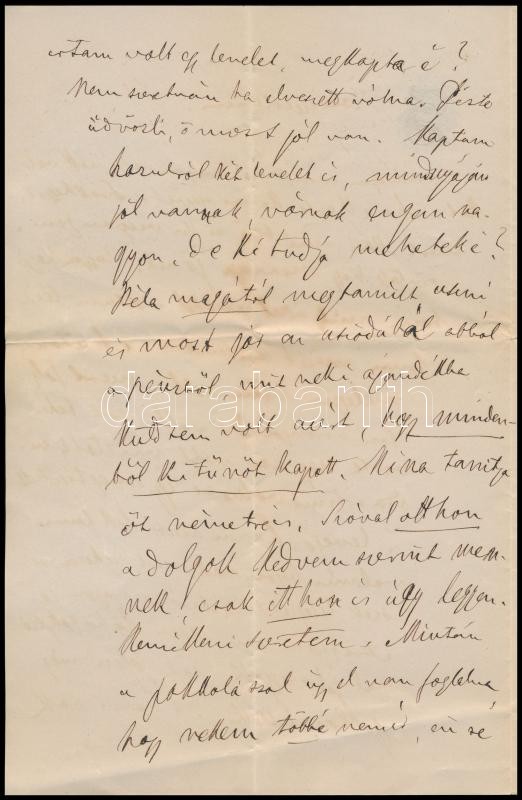 irtam volt egy levelet, megkapta é?
Nem szeretném ha elveszett volna. Pista
üdvözli, ő most jól van. Kaptam
hazulról két levelet is, mindnyájan
jól vannak, várnak engem na-
gyon, de ki tudja mehetek é?
Béla magától megtanult uszni
és most jár az uszodába abból
a pénzből mit neki ajándékba
küldtem volt azért, hogy minden-
ből kitünőt kapott. Nina tanitja
őt németre is. Szóval otthon
a dolgok kedvem szerint men-
nek, csak itthon is úgy legyen.
Remélleni szeretem. Miután
a pakkolással úgy el vagyok foglalva
hogy nekem többé nem id, én sé
darabanth